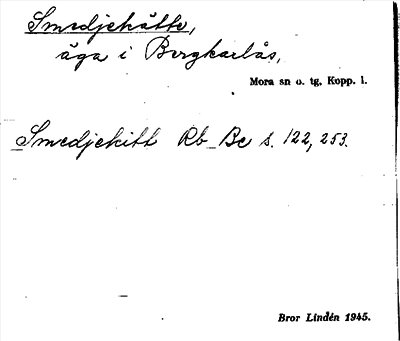 Smedjehätte,
äga i Bergkarlås,
Mora sn o. tg, Kopp. l.
Smedjehitt Rb_Be s. 122, 253.
Bror Lindén 1945.